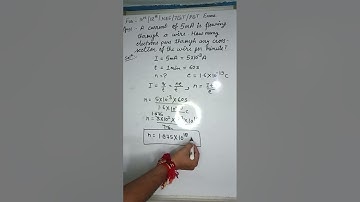 For : 11th / 12th / NEET / TGT / PGT Exams
Ques :- A current of 5mA is flowing
through a wire. How many
electrons pass through any cross-
section of the wire per minute?
I = 5mA = 5×10⁻³A
t = 1min = 60s
n = ? e = 1.6×10⁻¹⁹C
I = q/t = ne/t , n = It/e
n = 5×10⁻³×60s
1.6×10⁻¹⁹C
1.875
n = 3×10²
n = 1.875×10¹⁸